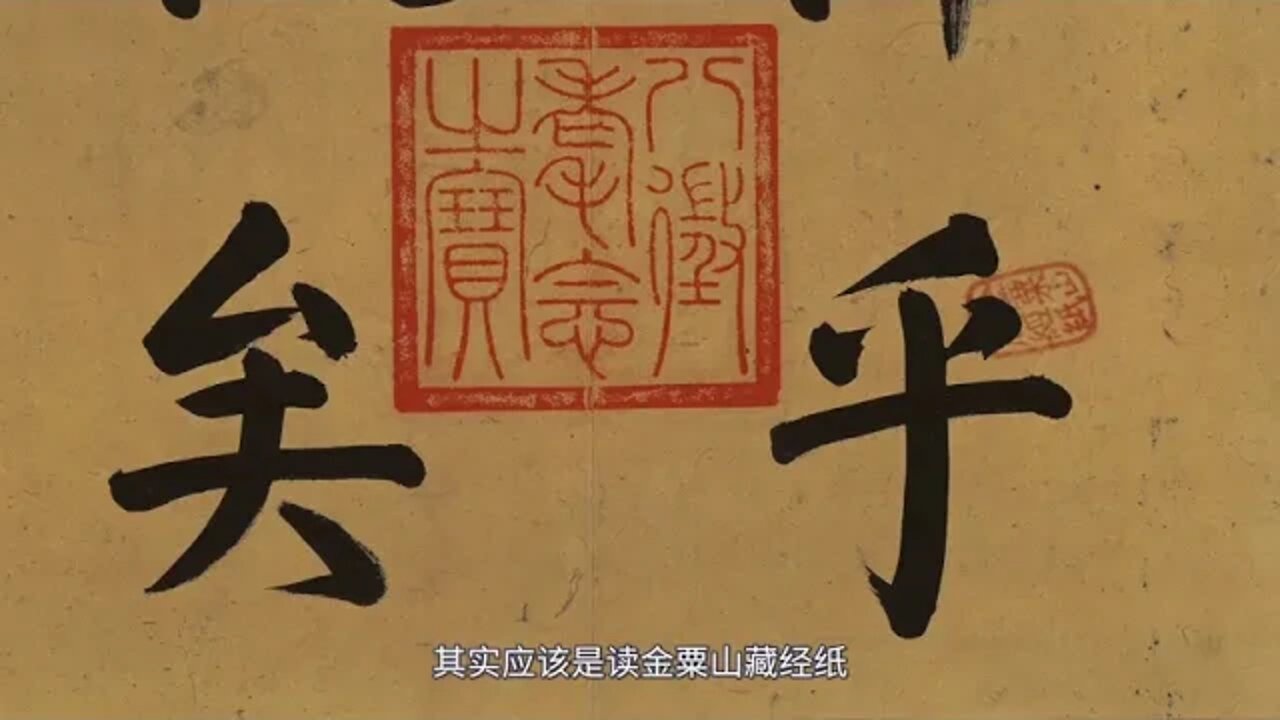 乎
八徵
耄念
之寶
矣
其实应该是读金粟山藏经纸